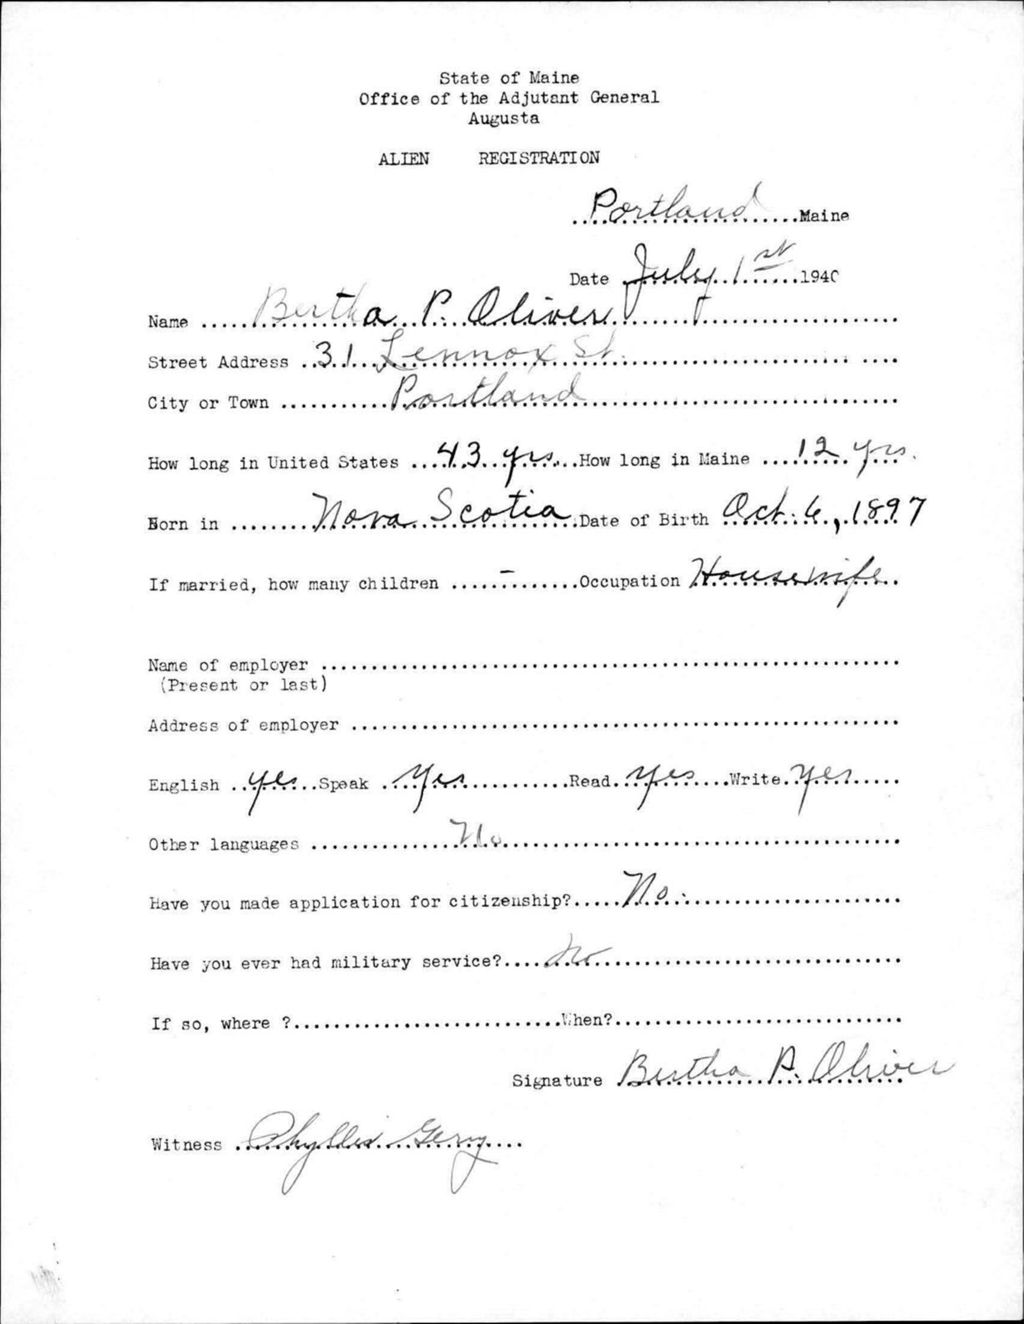 State of Maine
Office of the Adjutant General
Augusta
ALIEN REGISTRATION
Portland Maine
Date July 1st 1940
Name Bertha P. Oliver
Street Address 31 Lennox St.
City or Town Portland
How long in United States 43 yrs. How long in Maine 12 yrs.
Born in Nova Scotia Date of Birth Oct. 6, 1897
If married, how many children - Occupation Housewife
Name of employer
(Present or last)
Address of employer
English yes Speak Yes Read yes Write yes
Other languages No
Have you made application for citizenship? No.
Have you ever had military service? No
If so, where ? When?
Signature Bertha P. Oliver
Witness Phyllis